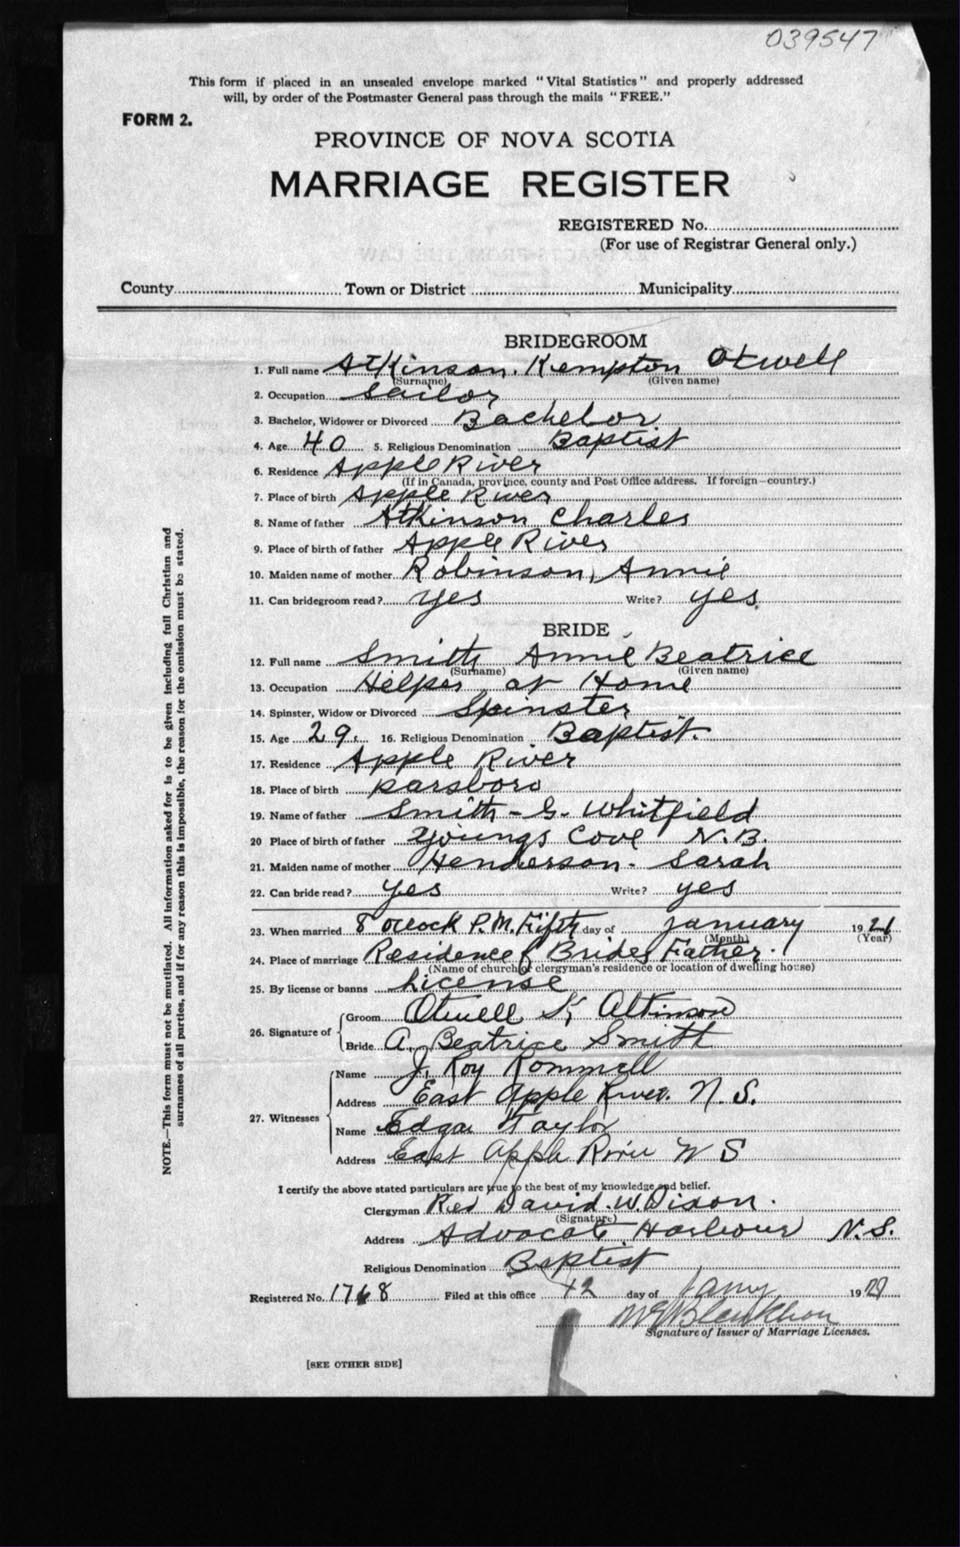 039547
This form if placed in an unsealed envelope marked "Vital Statistics" and properly addressed
will, by order of the Postmaster General pass through the mails "FREE."
FORM 2.
PROVINCE OF NOVA SCOTIA
MARRIAGE REGISTER
REGISTERED No.
(For use of Registrar General only.)
County Town or District Municipality
BRIDEGROOM
1. Full name Atkinson. Kempton Otwell
(Surname) (Given name)
2. Occupation Sailor
3. Bachelor, Widower or Divorced Bachelor
4. Age 40 5. Religious Denomination Baptist
6. Residence Apple River
(If in Canada, province, county and Post Office address. If foreign—country.)
7. Place of birth Apple River
8. Name of father Atkinson Charles
9. Place of birth of father Apple River
10. Maiden name of mother Robinson, Annie
11. Can bridegroom read? yes Write? yes
BRIDE
12. Full name Smith Annie Beatrice
(Surname) (Given name)
13. Occupation Helper at Home
14. Spinster, Widow or Divorced Spinster
15. Age 29. 16. Religious Denomination Baptist.
17. Residence Apple River
18. Place of birth parsboro
19. Name of father Smith - G. Whitfield
20 Place of birth of father Youngs Cove N.B.
21. Maiden name of mother Henderson - Sarah
22. Can bride read? yes Write? yes
23. When married 8 oclock P.M. Fifth day of January 19
(Month) (Year)
24. Place of marriage Residence of Brides Father.
(Name of church or clergyman's residence or location of dwelling house)
25. By license or banns License
26. Signature of Groom Otwell K, Atkinson
Bride A. Beatrice Smith
27. Witnesses Name J. Roy Rommell
Address East Apple River. N.S.
Name Edgar Taylor
Address East Apple River N S
I certify the above stated particulars are true to the best of my knowledge and belief.
Clergyman Rev David W. Dixon.
(Signature)
Address Advocate Harbour N.S.
Religious Denomination Baptist
Registered No. 1768 Filed at this office 12 day of Jany 19
Signature of Issuer of Marriage Licenses.
[SEE OTHER SIDE]
NOTE.—This form must not be mutilated. All information asked for is to be given including full Christian and
surnames of all parties, and if for any reason this is impossible, the reason for the omission must be stated.